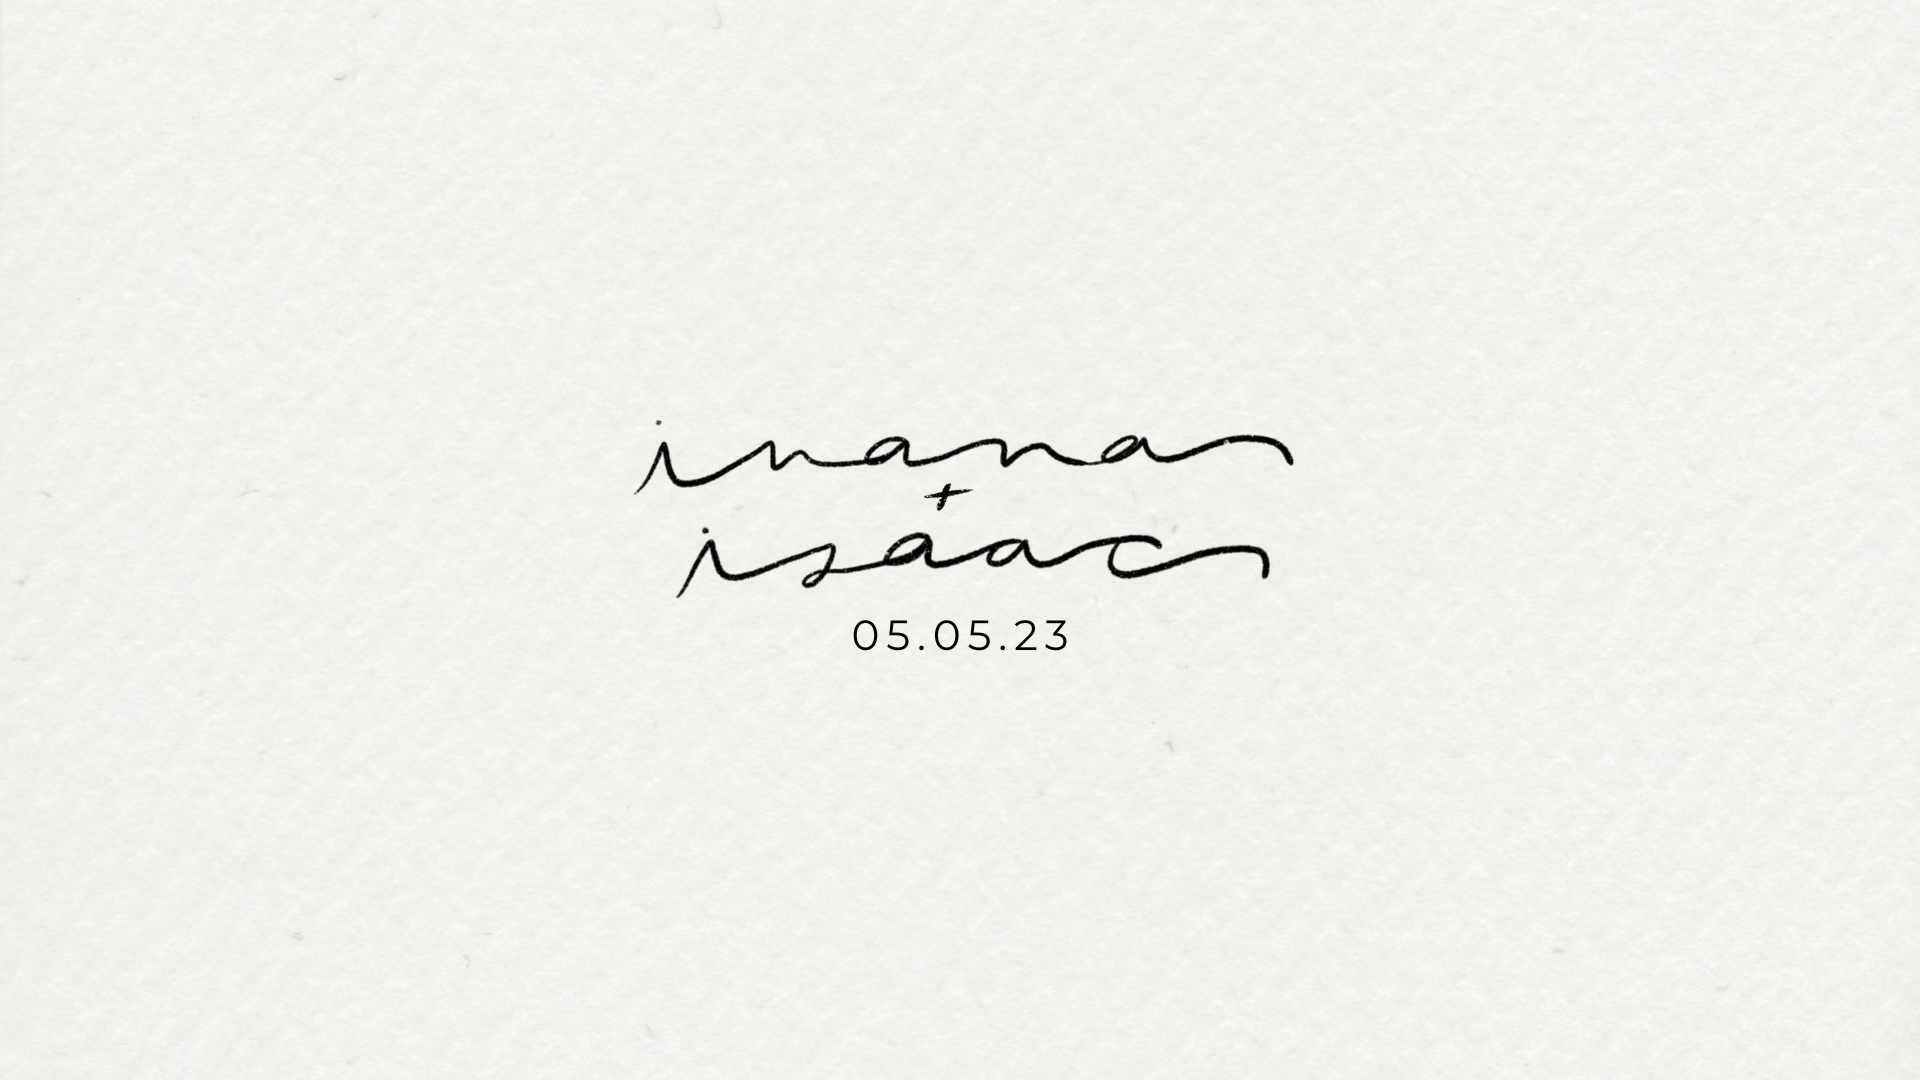 inana
+
isaac
05.05.23